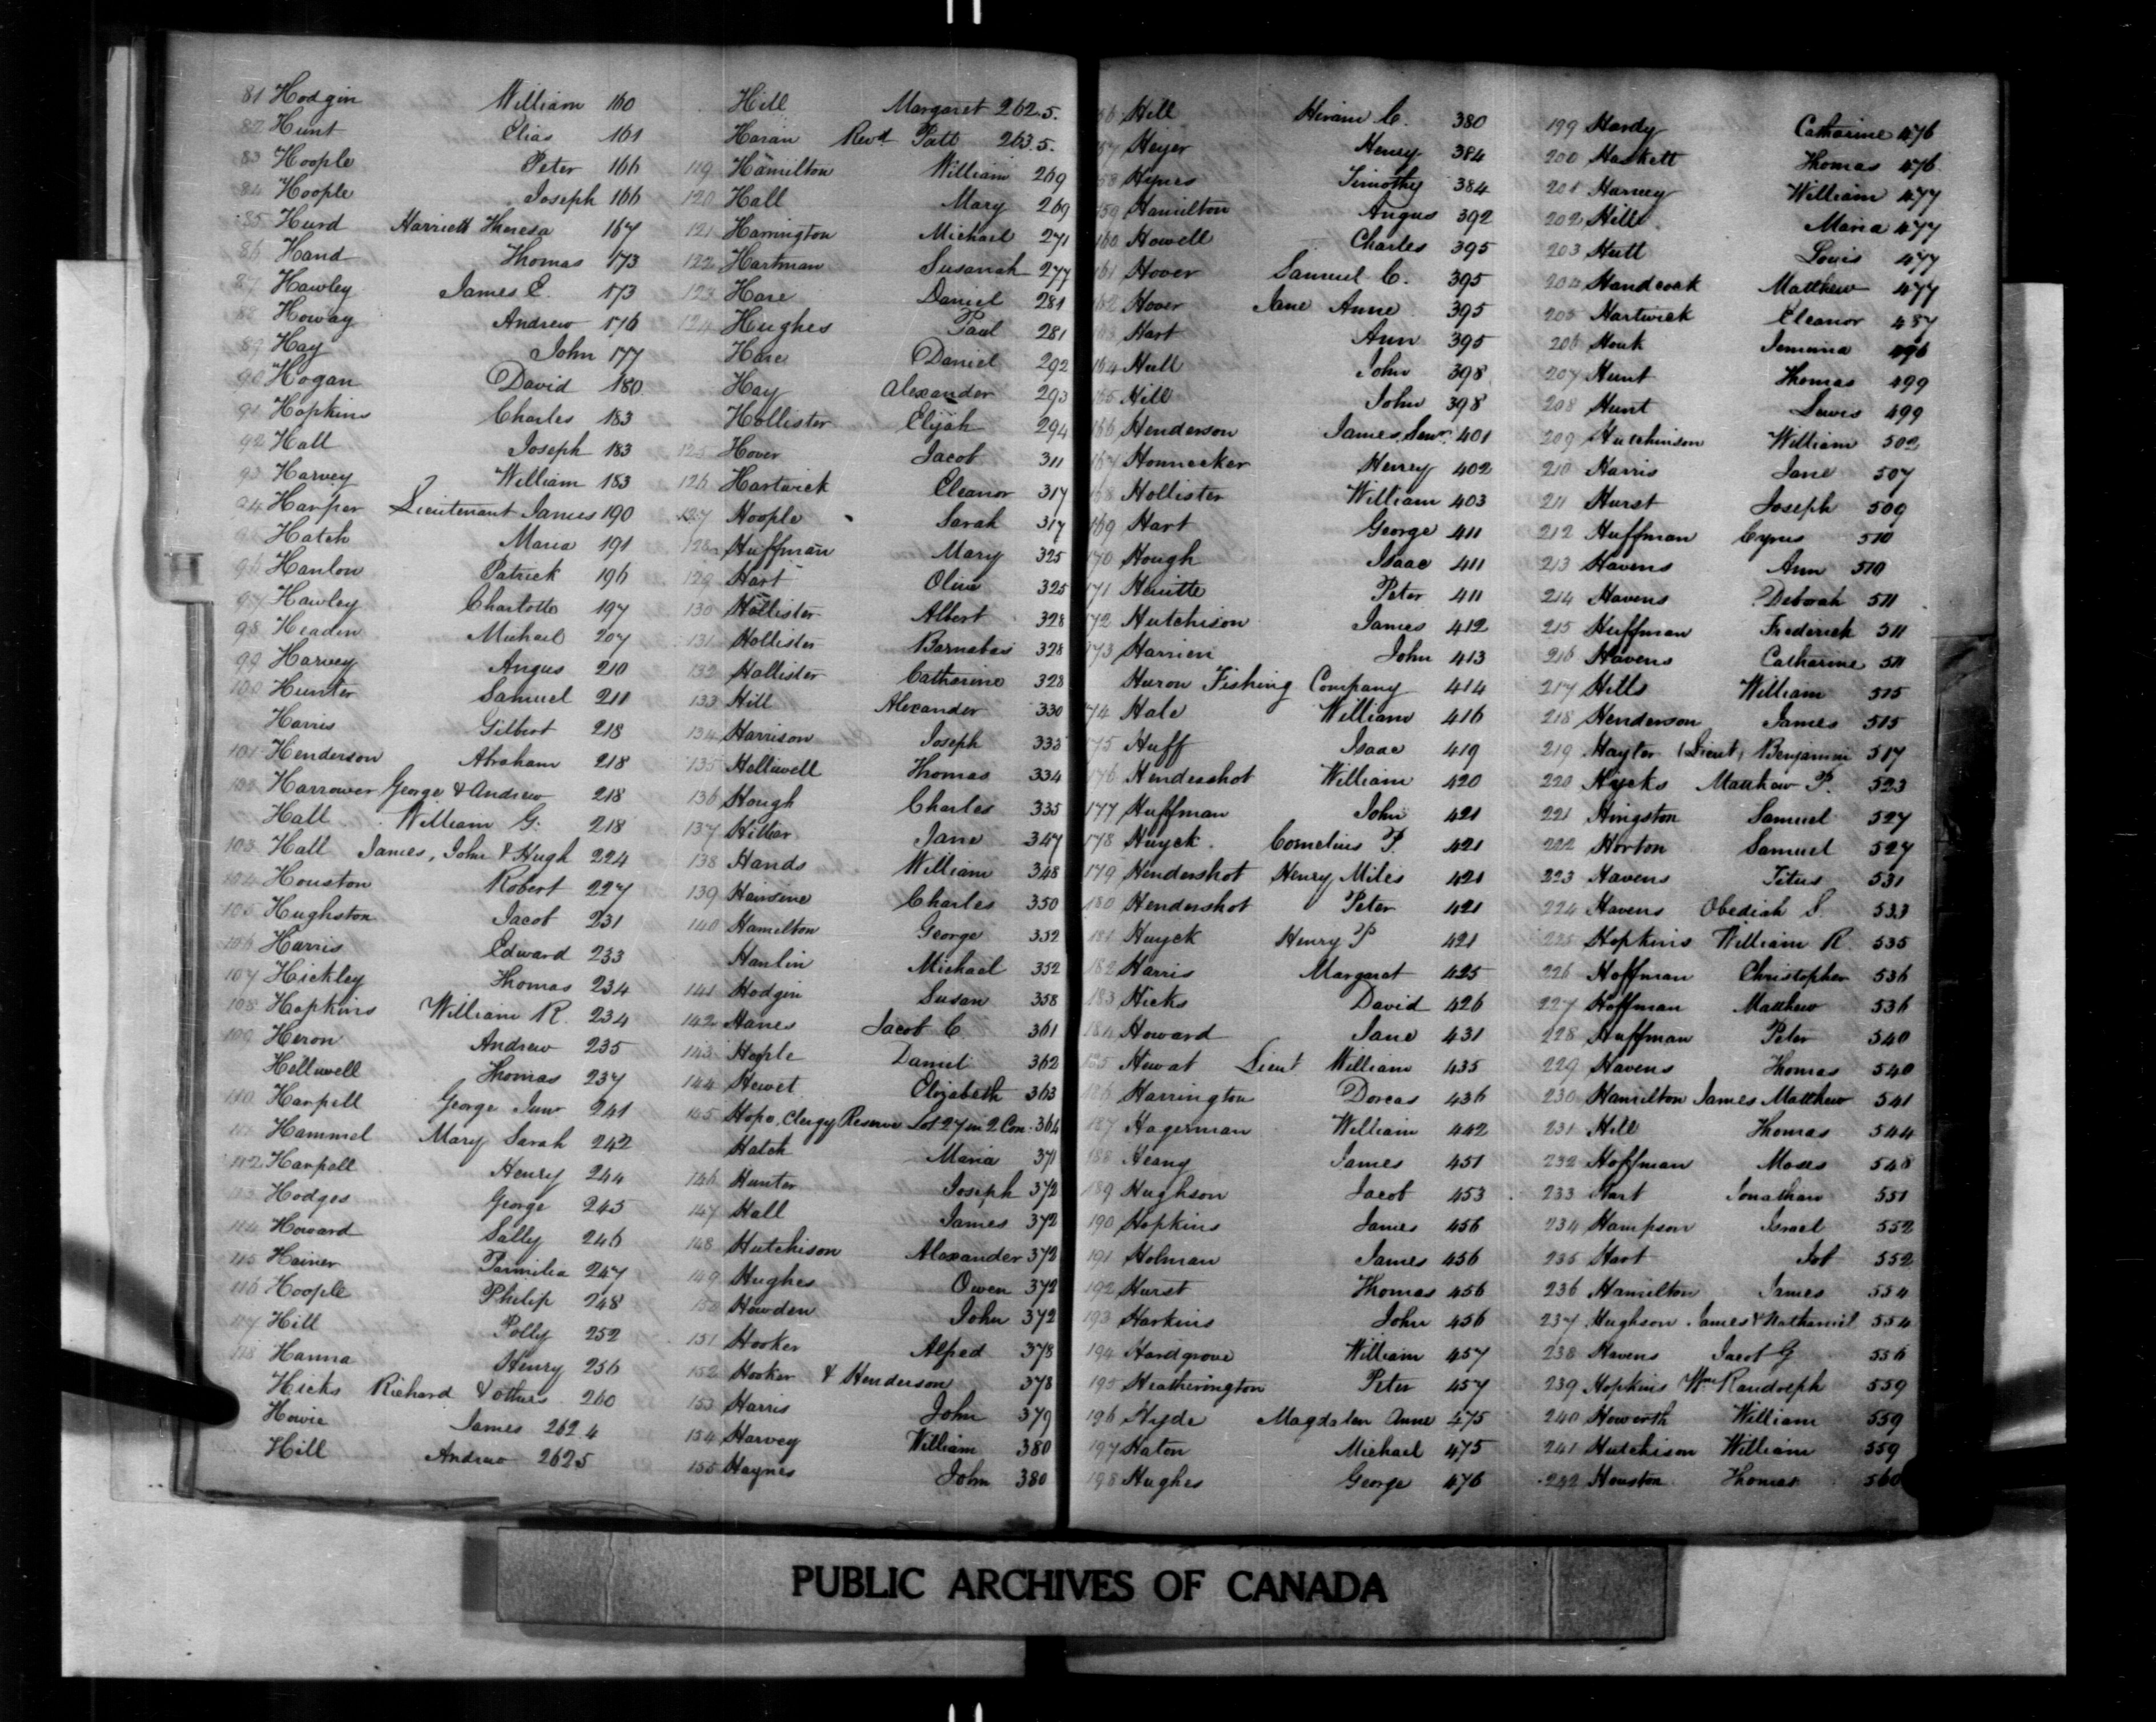 81 Hodgin William 160
82 Hunt Elias 161
83 Hoople Peter 166
84 Hoople Joseph 166
85 Hurd Harriett Theresa 167
86 Hand Thomas 173
87 Hawley James E. 173
88 Howay Andrew 176
89 Hay John 177
90 Hogan David 180
91 Hopkins Charles 183
92 Hall Joseph 183
93 Harvey William 183
94 Harper Lieutenant James 190
95 Hatch Maria 191
96 Hanlon Patrick 196
97 Hawley Charlotte 197
98 Headen Michael 207
99 Harvey Angus 210
100 Hunter Samuel 211
Harris Gilbert 218
101 Henderson Abraham 218
102 Harrower George & Andrew 218
Hall William G. 218
103 Hall James, John & Hugh 224
104 Houston Robert 227
105 Hughston Jacob 231
106 Harris Edward 233
107 Hickley Thomas 234
108 Hopkins William R. 234
109 Heron Andrew 235
Helliwell Thomas 237
110 Harpell George Junr 241
111 Hammel Mary Sarah 242
112 Harpell Henry 244
113 Hodges George 245
114 Howard Sally 246
115 Hainer Parmilia 247
116 Hoople Philip 248
117 Hill Polly 252
118 Hanna Henry 256
Hicks Richard & others 260
Howie James 262.4
Hill Andrew 262.5
Hill Margaret 262.5.
Haran Revd Patt 263.5.
119 Hamilton William 269
120 Hall Mary 269
121 Harrington Michael 271
122 Hartman Susanah 277
123 Hare Daniel 281
124 Hughes Paul 281
Hare Daniel 292
Hay Alexander 293
Hollister Elijah 294
125 Hover Jacob 311
126 Hartwick Eleanor 317
127 Hoople Sarah 317
128 Huffman Mary 325
129 Hart Olive 325
130 Hollister Albert 328
131 Hollister Barnabas 328
132 Hollister Catharine 328
133 Hill Alexander 330
134 Harrison Joseph 333
135 Helliwell Thomas 334
136 Hough Charles 335
137 Hillier Jane 347
138 Hands William 348
139 Charles 350
140 Hamilton George 352
Hanlin Michael 352
141 Hodgin Susan 358
142 Hanes Jacob C 361
143 Hople Daniel 362
144 Hewet Elizabeth 363
145 Hope, Clergy Reserve Lot 27 in 2 Con. 364
Hatch Maria 371
146 Hunter Joseph 372
147 Hall James 372
148 Hutchison Alexander 372
149 Hughes Owen 372
150 Howden John 372
151 Hooker Alfred 378
152 Hooker & Henderson 378
153 Harris John 379
154 Harvey William 380
155 Haynes John 380
156 Hill Hiram C. 380
157 Heyer Henry 384
158 Hynes Timothy 384
159 Hamilton Angus 392
160 Howell Charles 395
161 Hover Samuel C. 395
162 Hover Jane Anne 395
163 Hart Ann 395
164 Hull John 398
165 Hill John 398
166 Henderson James, Senr. 401
167 Honnecker Henry 402
168 Hollister William 403
169 Hart George 411
170 Hough Isaac 411
171 Peter 411
172 Hutchison James 412
173 Harrien John 413
Huron Fishing Company 414
174 Hale William 416
175 Huff Isaac 419
176 Hendershot William 420
177 Huffman John 421
178 Huyck Cornelius P. 421
179 Hendershot Henry Miles 421
180 Hendershot Peter 421
181 Huyck Henry P 421
182 Harris Margaret 425
183 Hicks David 426
184 Howard Jane 431
185 Hewat Lieut William 435
186 Harrington Dorcas 436
187 Hagerman William 442
188 Heany James 451
189 Hughson Jacob 453
190 Hopkins James 456
191 Holman James 456
192 Hurst Thomas 456
193 Harkins John 456
194 Hardgrove William 457
195 Heatherington Peter 457
196 Hyde Magdalen Anne 475
197 Haton Michael 475
198 Hughes George 476
199 Hardy Catharine 476
200 Haskett Thomas 476
201 Harvey William 477
202 Hill Maria 477
203 Hutt Louis 477
204 Handcock Matthew 477
205 Hartwick Eleanor 487
206 Houk Jemima 496
207 Hunt Thomas 499
208 Hunt Lewis 499
209 Hutchinson William 502
210 Harris Jane 507
211 Hurst Joseph 509
212 Huffman Cyrus 510
213 Havens Ann 510
214 Havens Deborah 511
215 Huffman Frederick 511
216 Havens Catharine 511
217 Hills William 515
218 Henderson James 515
219 Hayter (Lieut) Benjamin 517
220 Hycks Matthew P. 523
221 Hingston Samuel 527
222 Horton Samuel 527
223 Havens Titus 531
224 Havens Obediah S. 533
225 Hopkins William R. 535
226 Hoffman Christopher 536
227 Hoffman Matthew 536
228 Huffman Peter 540
229 Havens Thomas 540
230 Hamilton James Matthew 541
231 Hill Thomas 544
232 Hoffman Moses 548
233 Hart Jonathan 551
234 Hampson Israel 552
235 Hart Job 552
236 Hamilton James 554
237 Hughson James & Nathaniel 554
238 Havens Jacob G 556
239 Hopkins Wm Randolph 559
240 Howorth William 559
241 Hutchison William 559
242 Houston Thomas 560
PUBLIC ARCHIVES OF CANADA